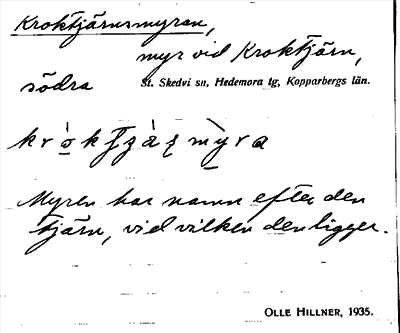 Kroktjärnsmyran,
myr vid Kroktjärn,
södra St. Skedvi sn, Hedemora tg, Kopparbergs län.
Myren har namn efter den
tjärn, vid vilken den ligger.
OLLE HILLNER, 1935.